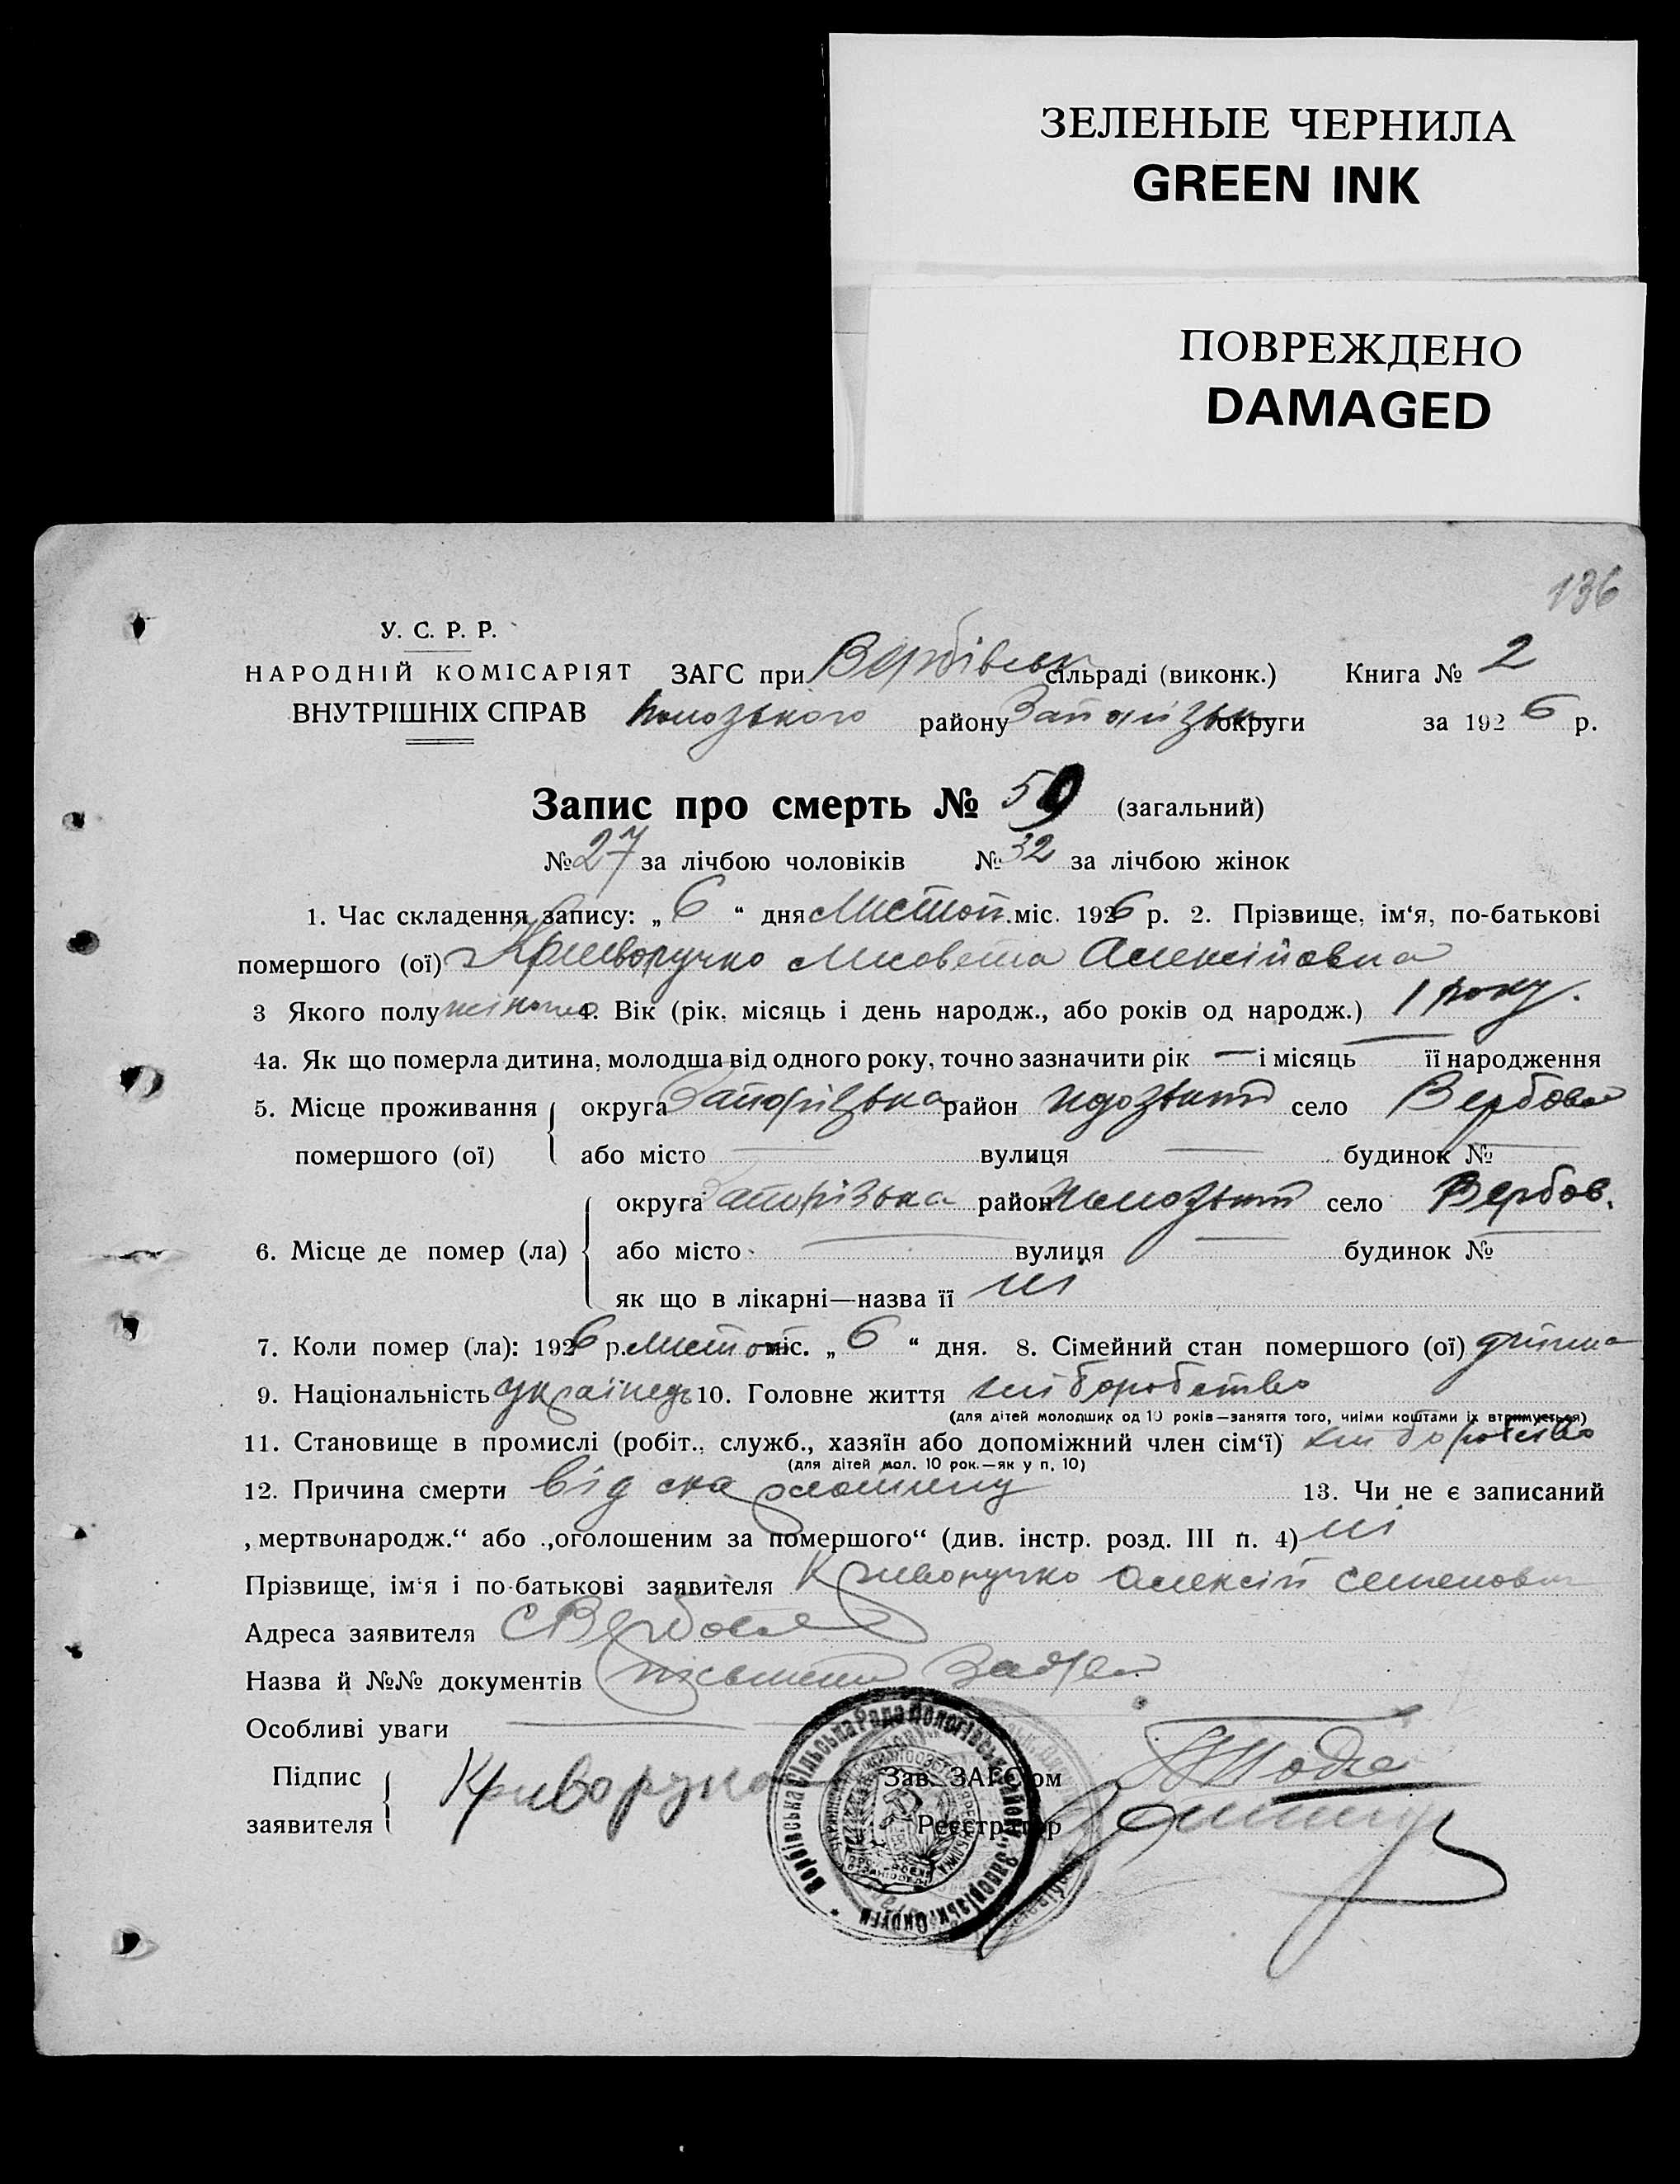 ЗЕЛЕНЫЕ ЧЕРНИЛА
GREEN INK
ПОВРЕЖДЕНО
DAMAGED
136
У. С. Р. Р.
НАРОДНІЙ КОМІСАРІЯТ ЗАГС при Вербівськ сільраді (виконк.) Книга № 2
ВНУТРІШНІХ СПРАВ району Запоріzьк округи за 1926 р.
Запис про смерть № 59 (загальний)
№ 27 за лічбою чоловіків № 32 за лічбою жінок
1. Час складення запису: „6“ дня Листоп. міс. 1926 р. 2. Прізвище, ім‘я, по-батькові
помершого (ої) Криворучко Лисовета Алексійовна
3 Якого полу жіночо 4. Вік (рік. місяць і день народж., або років од народж.) 1 року.
4а. Як що померла дитина, молодша від одного року, точно зазначити рік — і місяць її народження
5. Місце проживання округа Запорізька район село Вербова
помершого (ої) або місто — вулиця — будинок № —
округа Запорізька район село Вербов.
6. Місце де помер (ла) або місто — вулиця — будинок № —
як що в лікарні—назва її ні
7. Коли помер (ла): 1926 р. Листоп міс. „6“ дня. 8. Сімейний стан помершого (ої) дітина
9. Національність українець 10. Головне життя хліборобство
(для дітей молодших од 10 років—заняття того, чиїми коштами їх втримується)
11. Становище в промислі (робіт., служб., хазяїн або допоміжний член сім‘ї) хліборобство
(для дітей мол. 10 рок.—як у п. 10)
12. Причина смерти від скарлатину 13. Чи не є записаний
„мертвонародж.“ або „оголошеним за помершого“ (див. інстр. розд. III п. 4) ні
Прізвище, ім‘я і по-батькові заявителя Криворучко Алексій Семенович
Адреса заявителя с Вербова
Назва й №№ документів
Особливі уваги —
Підпис Зав. ЗАГС‘ом
заявителя Криворучко Реєстратор
Вербівська Сільська Рада Пологівськ. район. Запорізьк. Округи